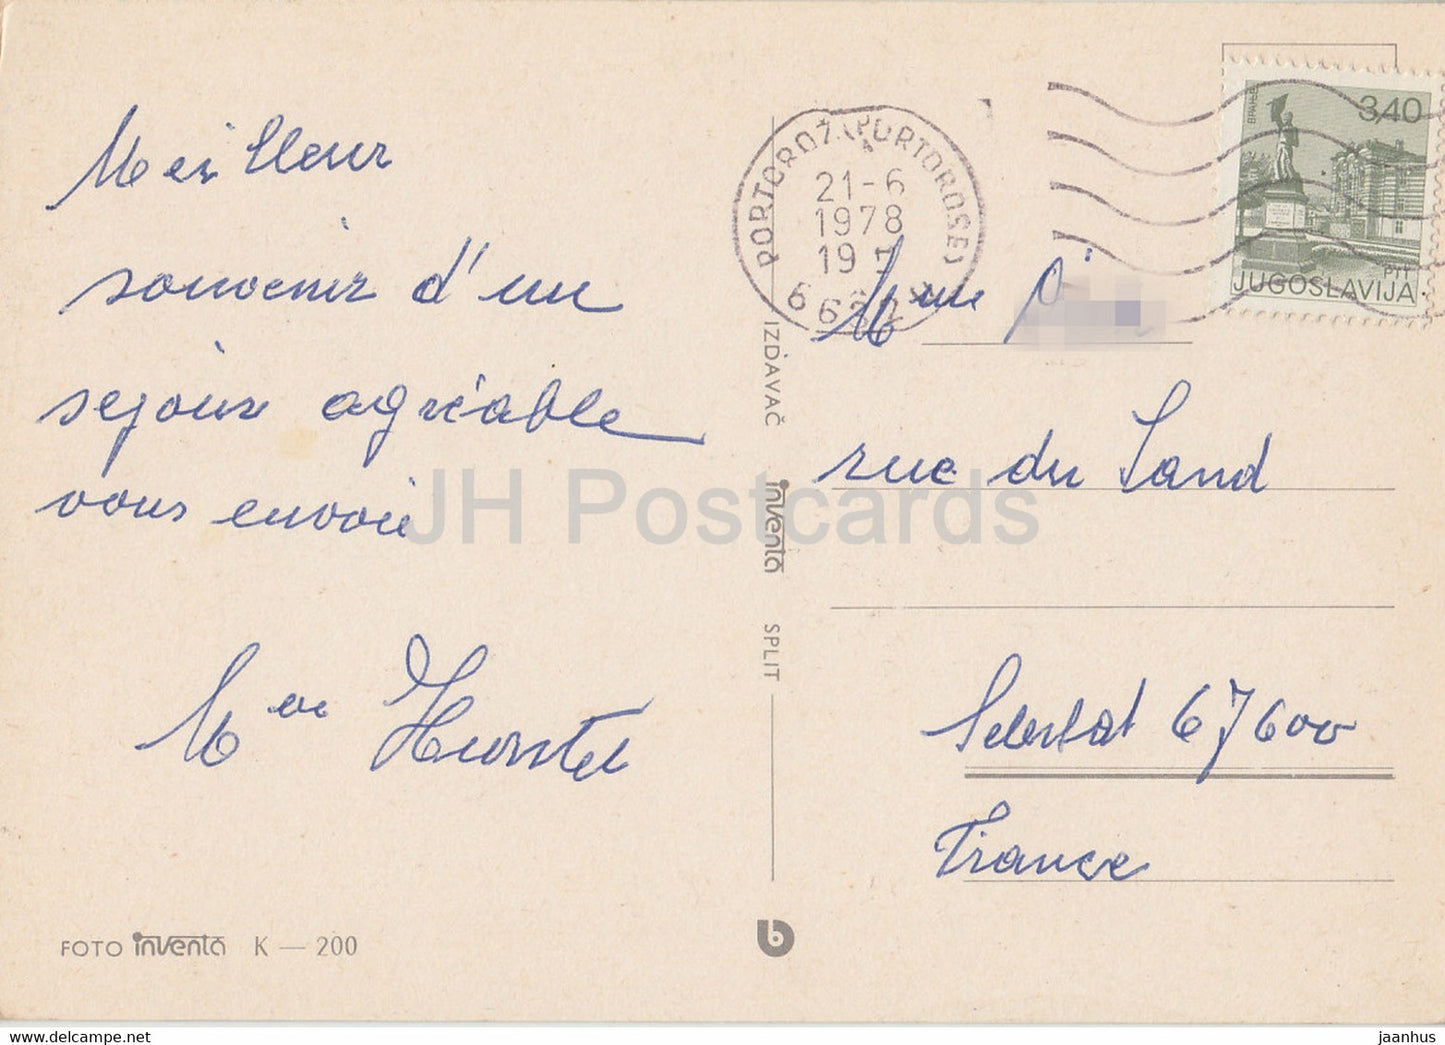 Meilleur
souvenir d'un
sejour agréable
vous envoie
Mme
FOTO inventa K — 200
IZDAVAČ inventa SPLIT
PORTOROŽ (PORTOROSE)
21-6
1978
19
ВРАЊЕ
3,40
PTT
JUGOSLAVIJA
Mme
rue du Sand
Selestat 67600
France
JH Postcards
jaanhus